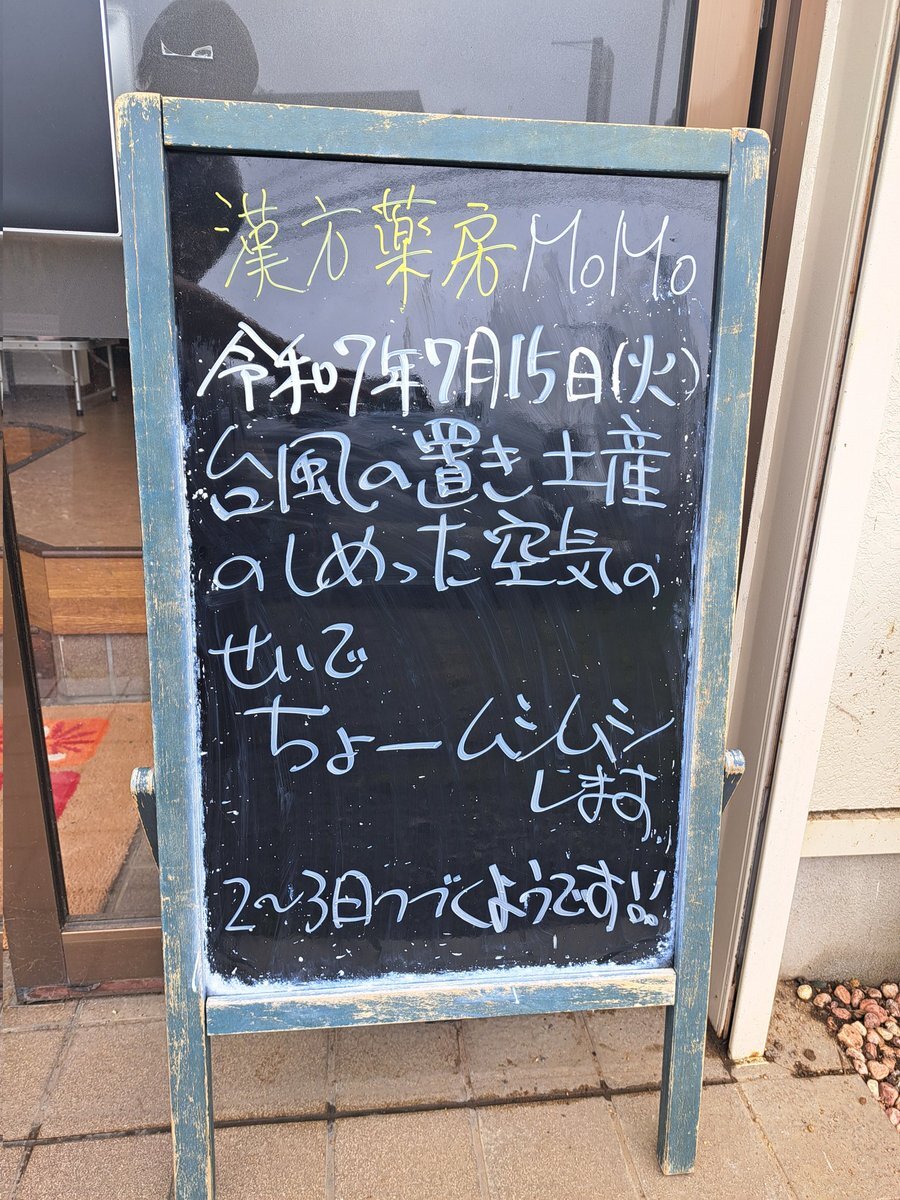 漢方薬房MoMo
令和7年7月15日(火)
台風の置き土産
のしめった空気の
せいで
ちょームシムシ
します...
2～3日つづくようです!!